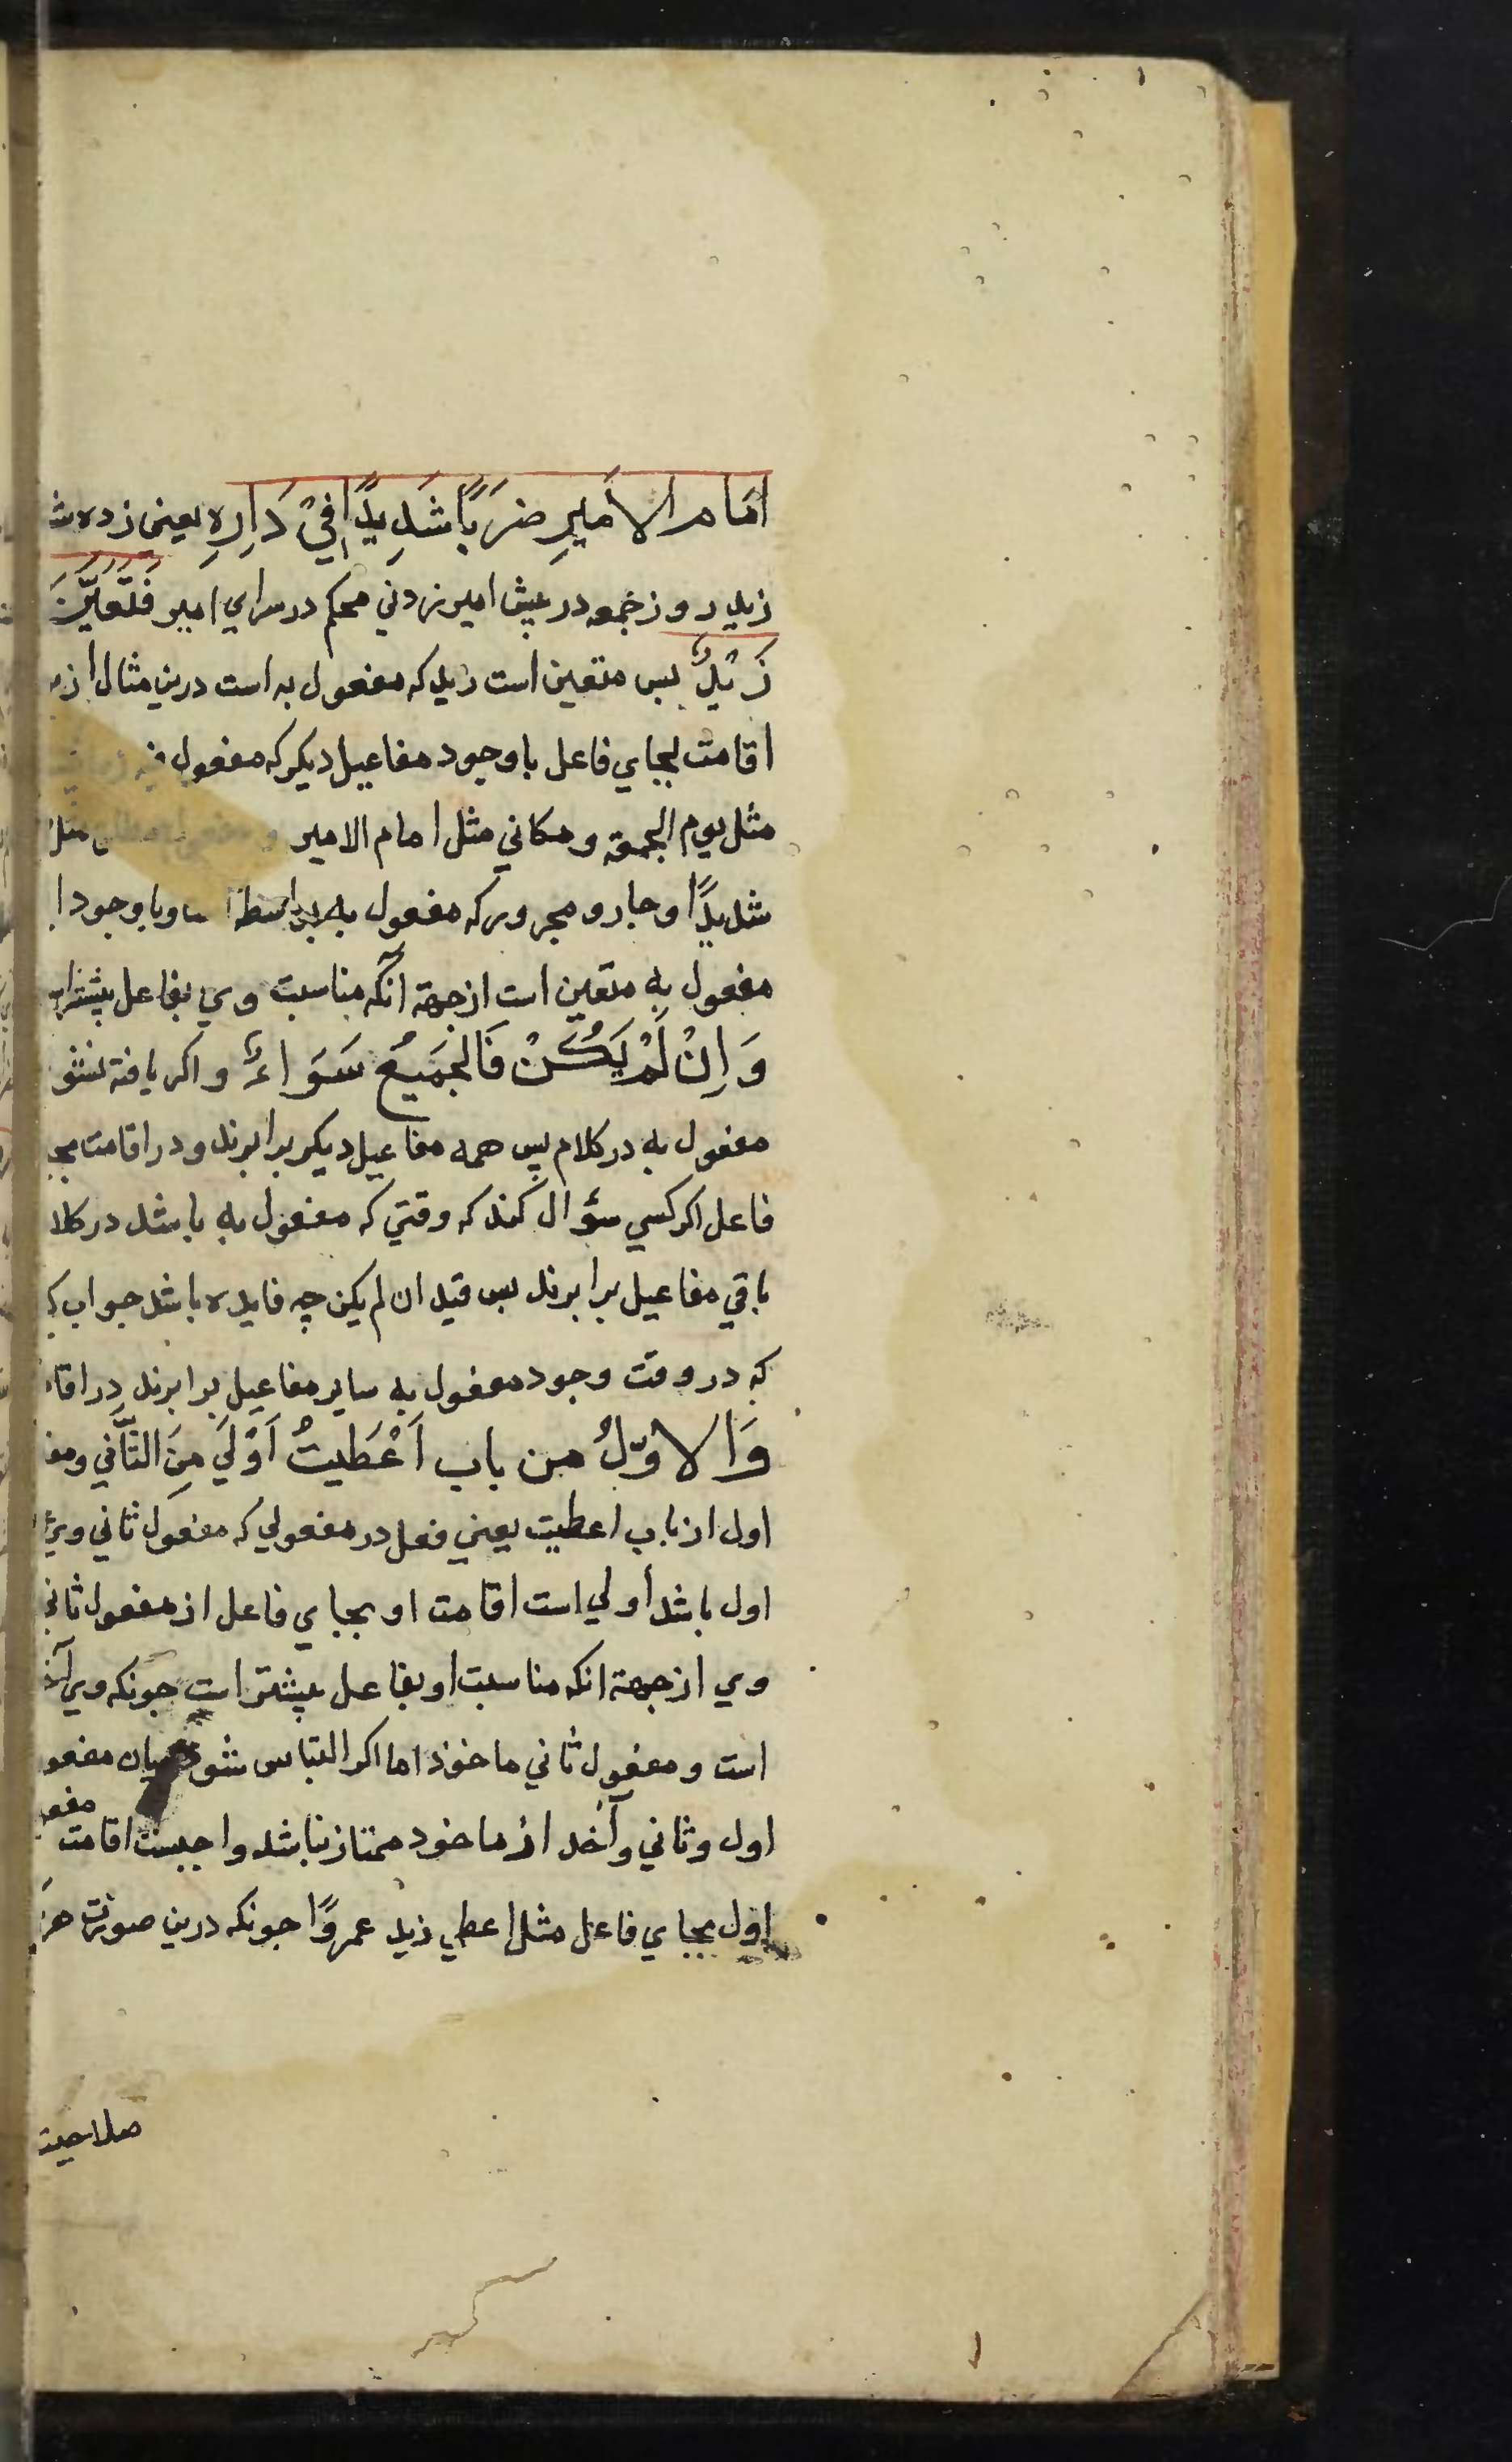 اَمَامَ الاَمِیرِ ضَرَبًا شَدِیدًا فِیْ دَارِهِ یعنی زده ش
زید روز جمعه در پیش امیر زدنی محکم در سرای امیر فَتَعَیَّنَ
زَیْدٌ پس متعین است زید که مفعول به است درین مثال از
اقامت بجای فاعل با وجود مفاعیل دیکر که مفعول فیه
مثل یوم الجمعة و مکانی مثل امام الامیر مثل
شدیدًا و جار و مجرور که مفعول به بواسطه و با وجود ا
مفعول به متعین است از جهة آنکه مناسبت وی بفاعل بیشتر
وَاِنْ لَمْ یَکُنْ فَالجَمیعُ سَوَاءٌ و اکر یافته نشو
مفعول به در کلام پس همه مفاعیل دیکر برابرند و در اقامت بجا
فاعل اکر کسی سؤال کند که وقتی که مفعول به باشد در کلا
باقی مفاعیل برابرند پس قید ان لم یکن چه فایده باشد جواب
که در وقت وجود مفعول به سایر مفاعیل برابرند در اقا
وَالاوّلُ من باب اَعْطَیتُ اَوْلَیَ مِنَ الثَّانی و مفـ
اول از باب اعطیت یعنی فعل در مفعولی که مفعول ثانی وی
اول باشد أولی است اقامت او بجای فاعل از مفعول ثانی
وی از جهة انکه مناسبت او بفاعل بیشتر است جونکه وی آخذ
است و مفعول ثانی ماخوذ اما اکر التباس شود میان مفعو
اول و ثانی و آخذ از ماخوذ ممتاز نباشد واجبست اقامت مفعو
اول بجای فاعل مثل اعطی زید عمروًا جونکه درین صورت هر
صلاحیت